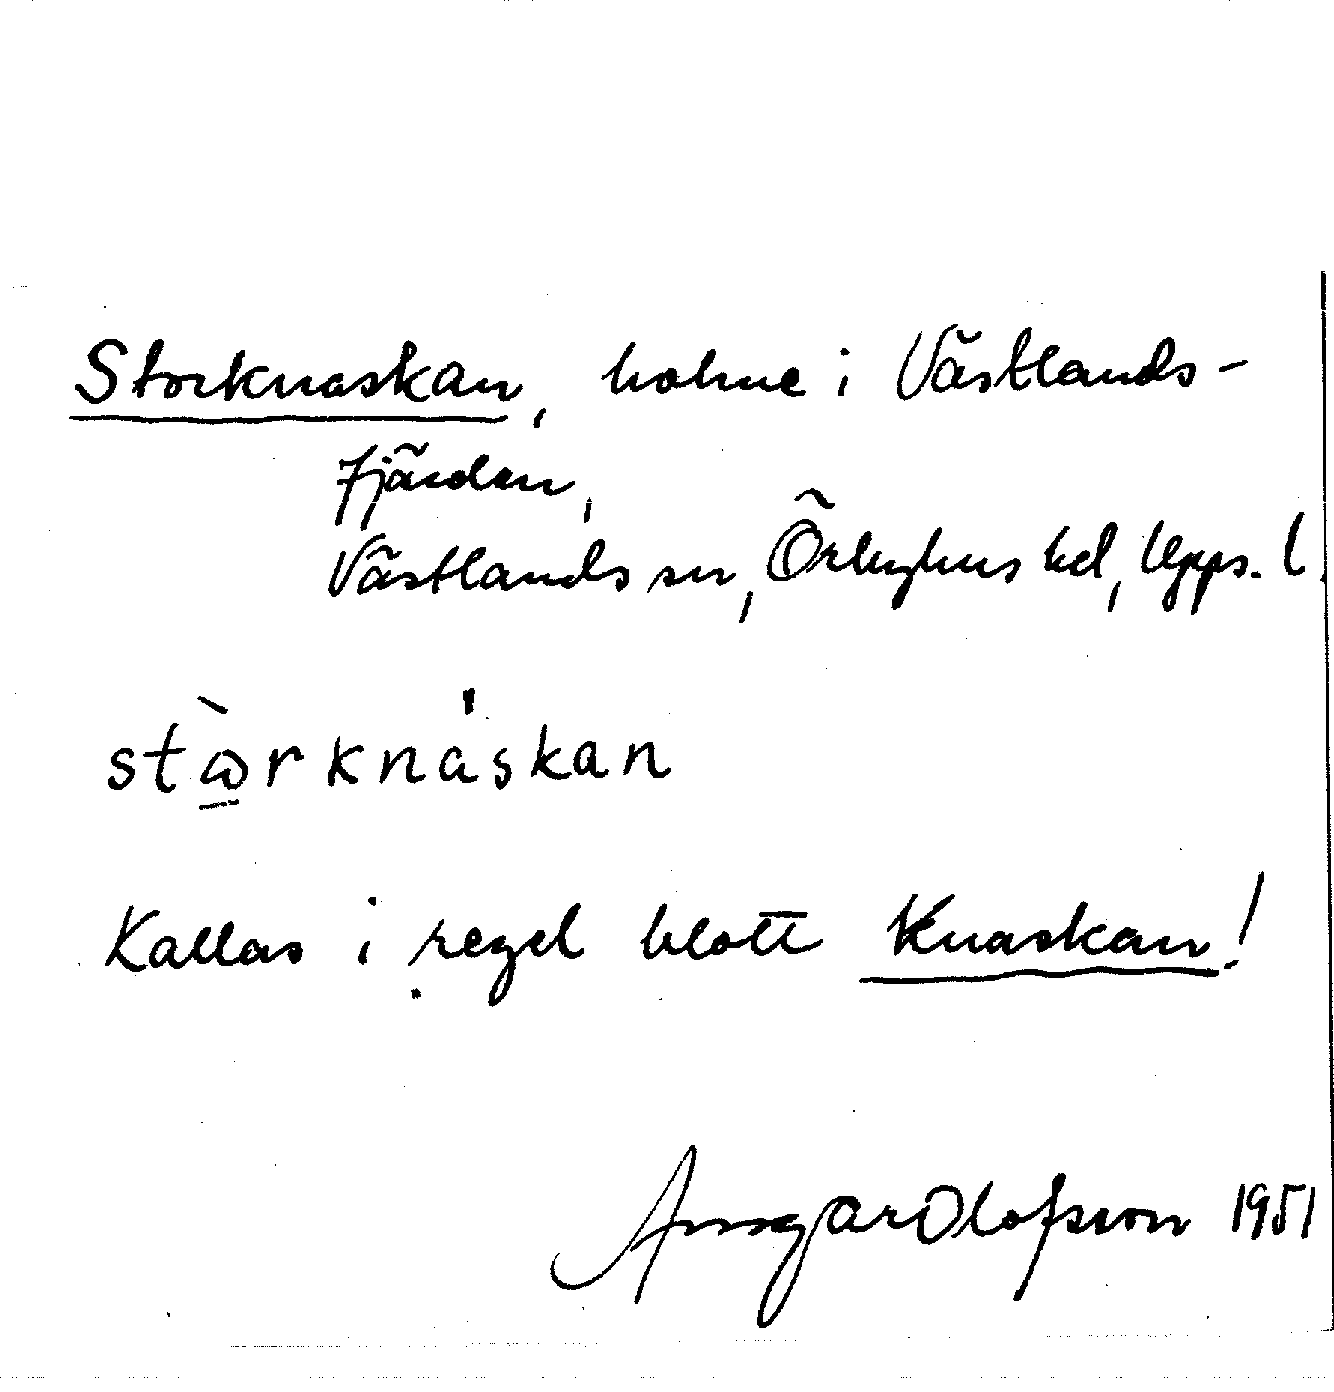 Storknaskan, holme i Västlands-
fjärden,
Västlands sn, Örbyhus hd, Upps. l.
stὼ̲rkna̍skan
Kallas i regel blott Knaskan!
Ansgar Olofsson 1951